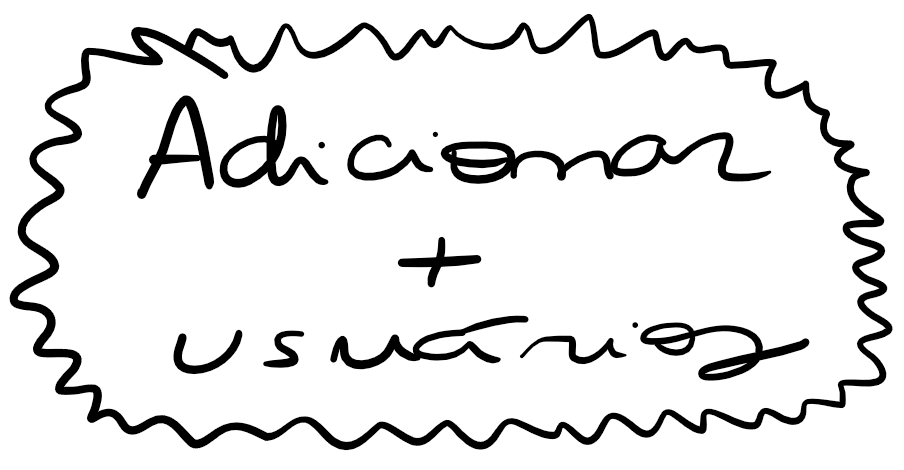 Adicionar
+
usuários